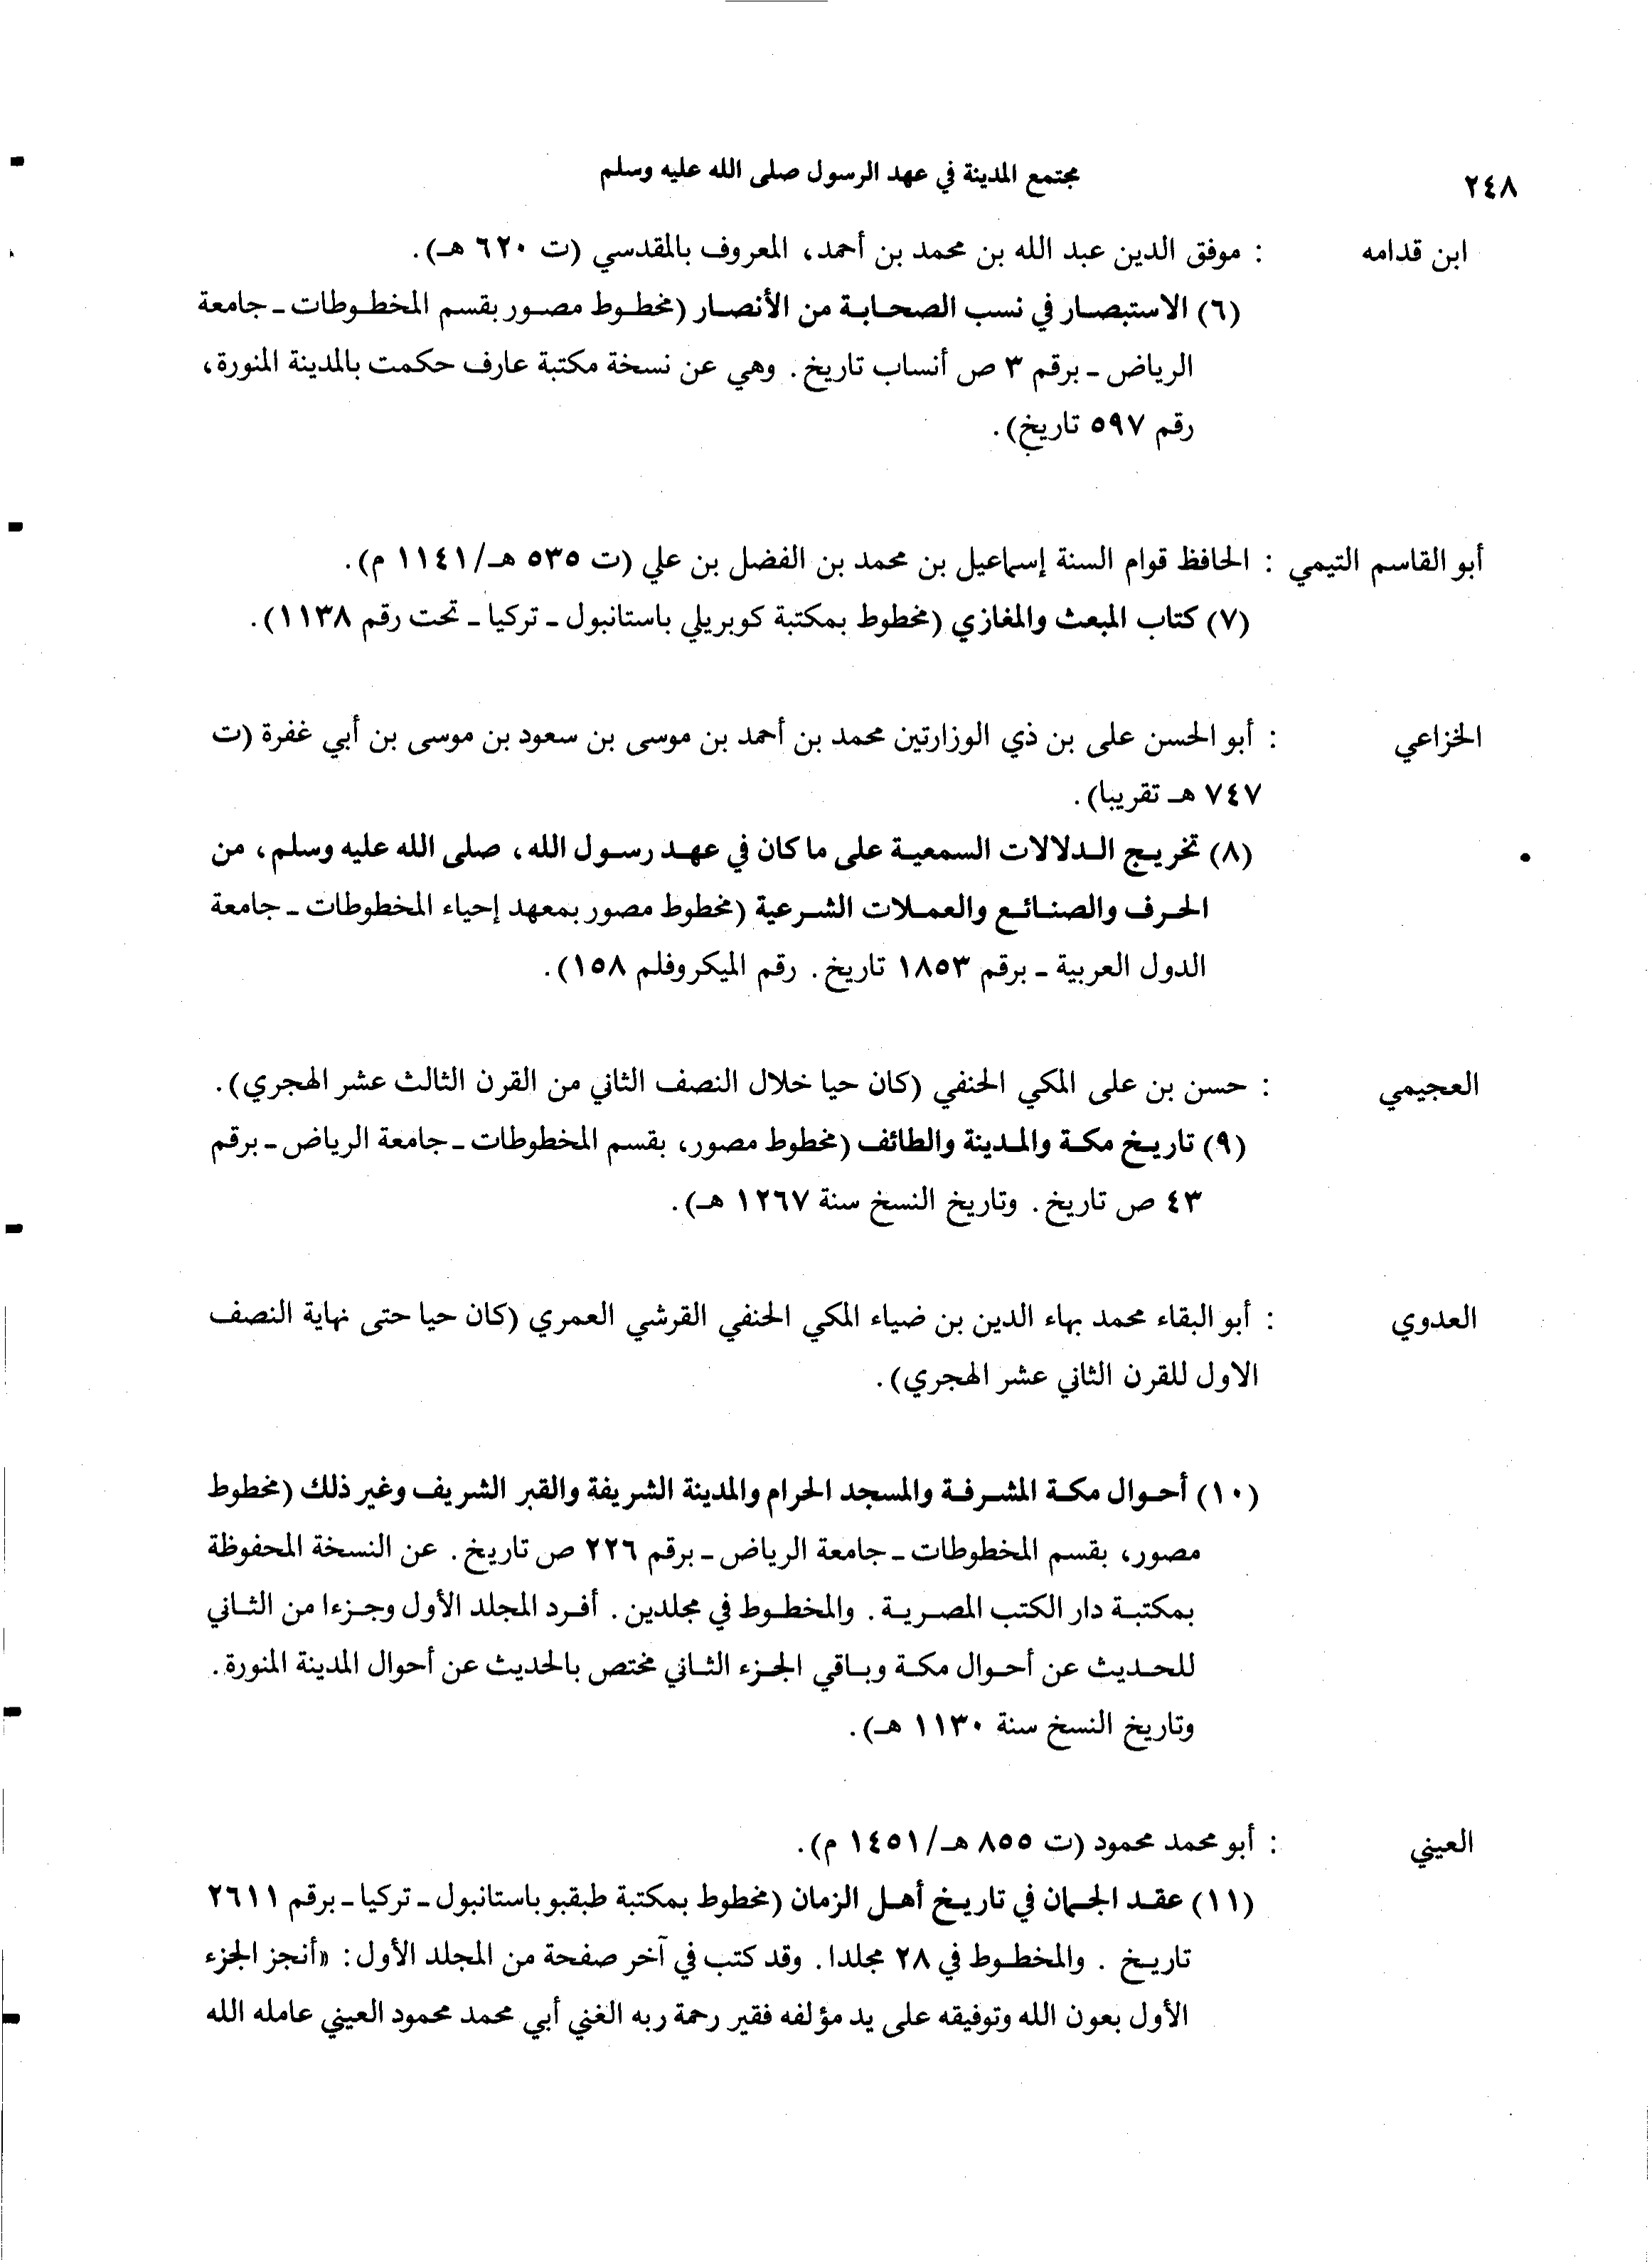 ٢٤٨ مجتمع المدينة في عهد الرسول صلى الله عليه وسلم
ابن قدامه : موفق الدين عبد الله بن محمد بن أحمد، المعروف بالمقدسي (ت ٦٢٠ هـ).
(٦) الاستبصار في نسب الصحابة من الأنصار (مخطوط مصور بقسم المخطوطات ـ جامعة
الرياض ـ برقم ٣ ص أنساب تاريخ. وهي عن نسخة مكتبة عارف حكمت بالمدينة المنورة،
رقم ٥٩٧ تاريخ).
أبو القاسم التيمي : الحافظ قوام السنة إسماعيل بن محمد بن الفضل بن علي (ت ٥٣٥ هـ/١١٤١ م).
(٧) كتاب المبعث والمغازي (مخطوط بمكتبة كوبريلي باستانبول ـ تركيا ـ تحت رقم ١١٣٨).
الخزاعي : أبو الحسن على بن ذي الوزارتين محمد بن أحمد بن موسى بن سعود بن موسى بن أبي غفرة (ت
٧٤٧ هـ تقريبا).
(٨) تخريج الدلالات السمعية على ما كان في عهد رسول الله، صلى الله عليه وسلم، من
الحرف والصنائع والعملات الشرعية (مخطوط مصور بمعهد إحياء المخطوطات ـ جامعة
الدول العربية ـ برقم ١٨٥٣ تاريخ. رقم الميكروفلم ١٥٨).
العجيمي : حسن بن على المكي الحنفي (كان حيا خلال النصف الثاني من القرن الثالث عشر الهجري).
(٩) تاريخ مكة والمدينة والطائف (مخطوط مصور، بقسم المخطوطات ـ جامعة الرياض ـ برقم
٤٣ ص تاريخ. وتاريخ النسخ سنة ١٢٦٧ هـ).
العدوي : أبو البقاء محمد بهاء الدين بن ضياء المكي الحنفي القرشي العمري (كان حيا حتى نهاية النصف
الاول للقرن الثاني عشر الهجري).
(١٠) أحوال مكة المشرفة والمسجد الحرام والمدينة الشريفة والقبر الشريف وغير ذلك (مخطوط
مصور، بقسم المخطوطات ـ جامعة الرياض ـ برقم ٢٢٦ ص تاريخ. عن النسخة المحفوظة
بمكتبة دار الكتب المصرية. والمخطوط في مجلدين. أفرد المجلد الأول وجزءا من الثاني
للحديث عن أحوال مكة وباقي الجزء الثاني مختص بالحديث عن أحوال المدينة المنورة.
وتاريخ النسخ سنة ١١٣٠ هـ).
العيني : أبو محمد محمود (ت ٨٥٥ هـ/١٤٥١ م).
(١١) عقد الجمان في تاريخ أهل الزمان (مخطوط بمكتبة طبقبو باستانبول ـ تركيا ـ برقم ٢٦١١
تاريخ . والمخطوط في ٢٨ مجلدا. وقد كتب في آخر صفحة من المجلد الأول: «أنجز الجزء
الأول بعون الله وتوفيقه على يد مؤلفه فقير رحمة ربه الغني أبي محمد محمود العيني عامله الله